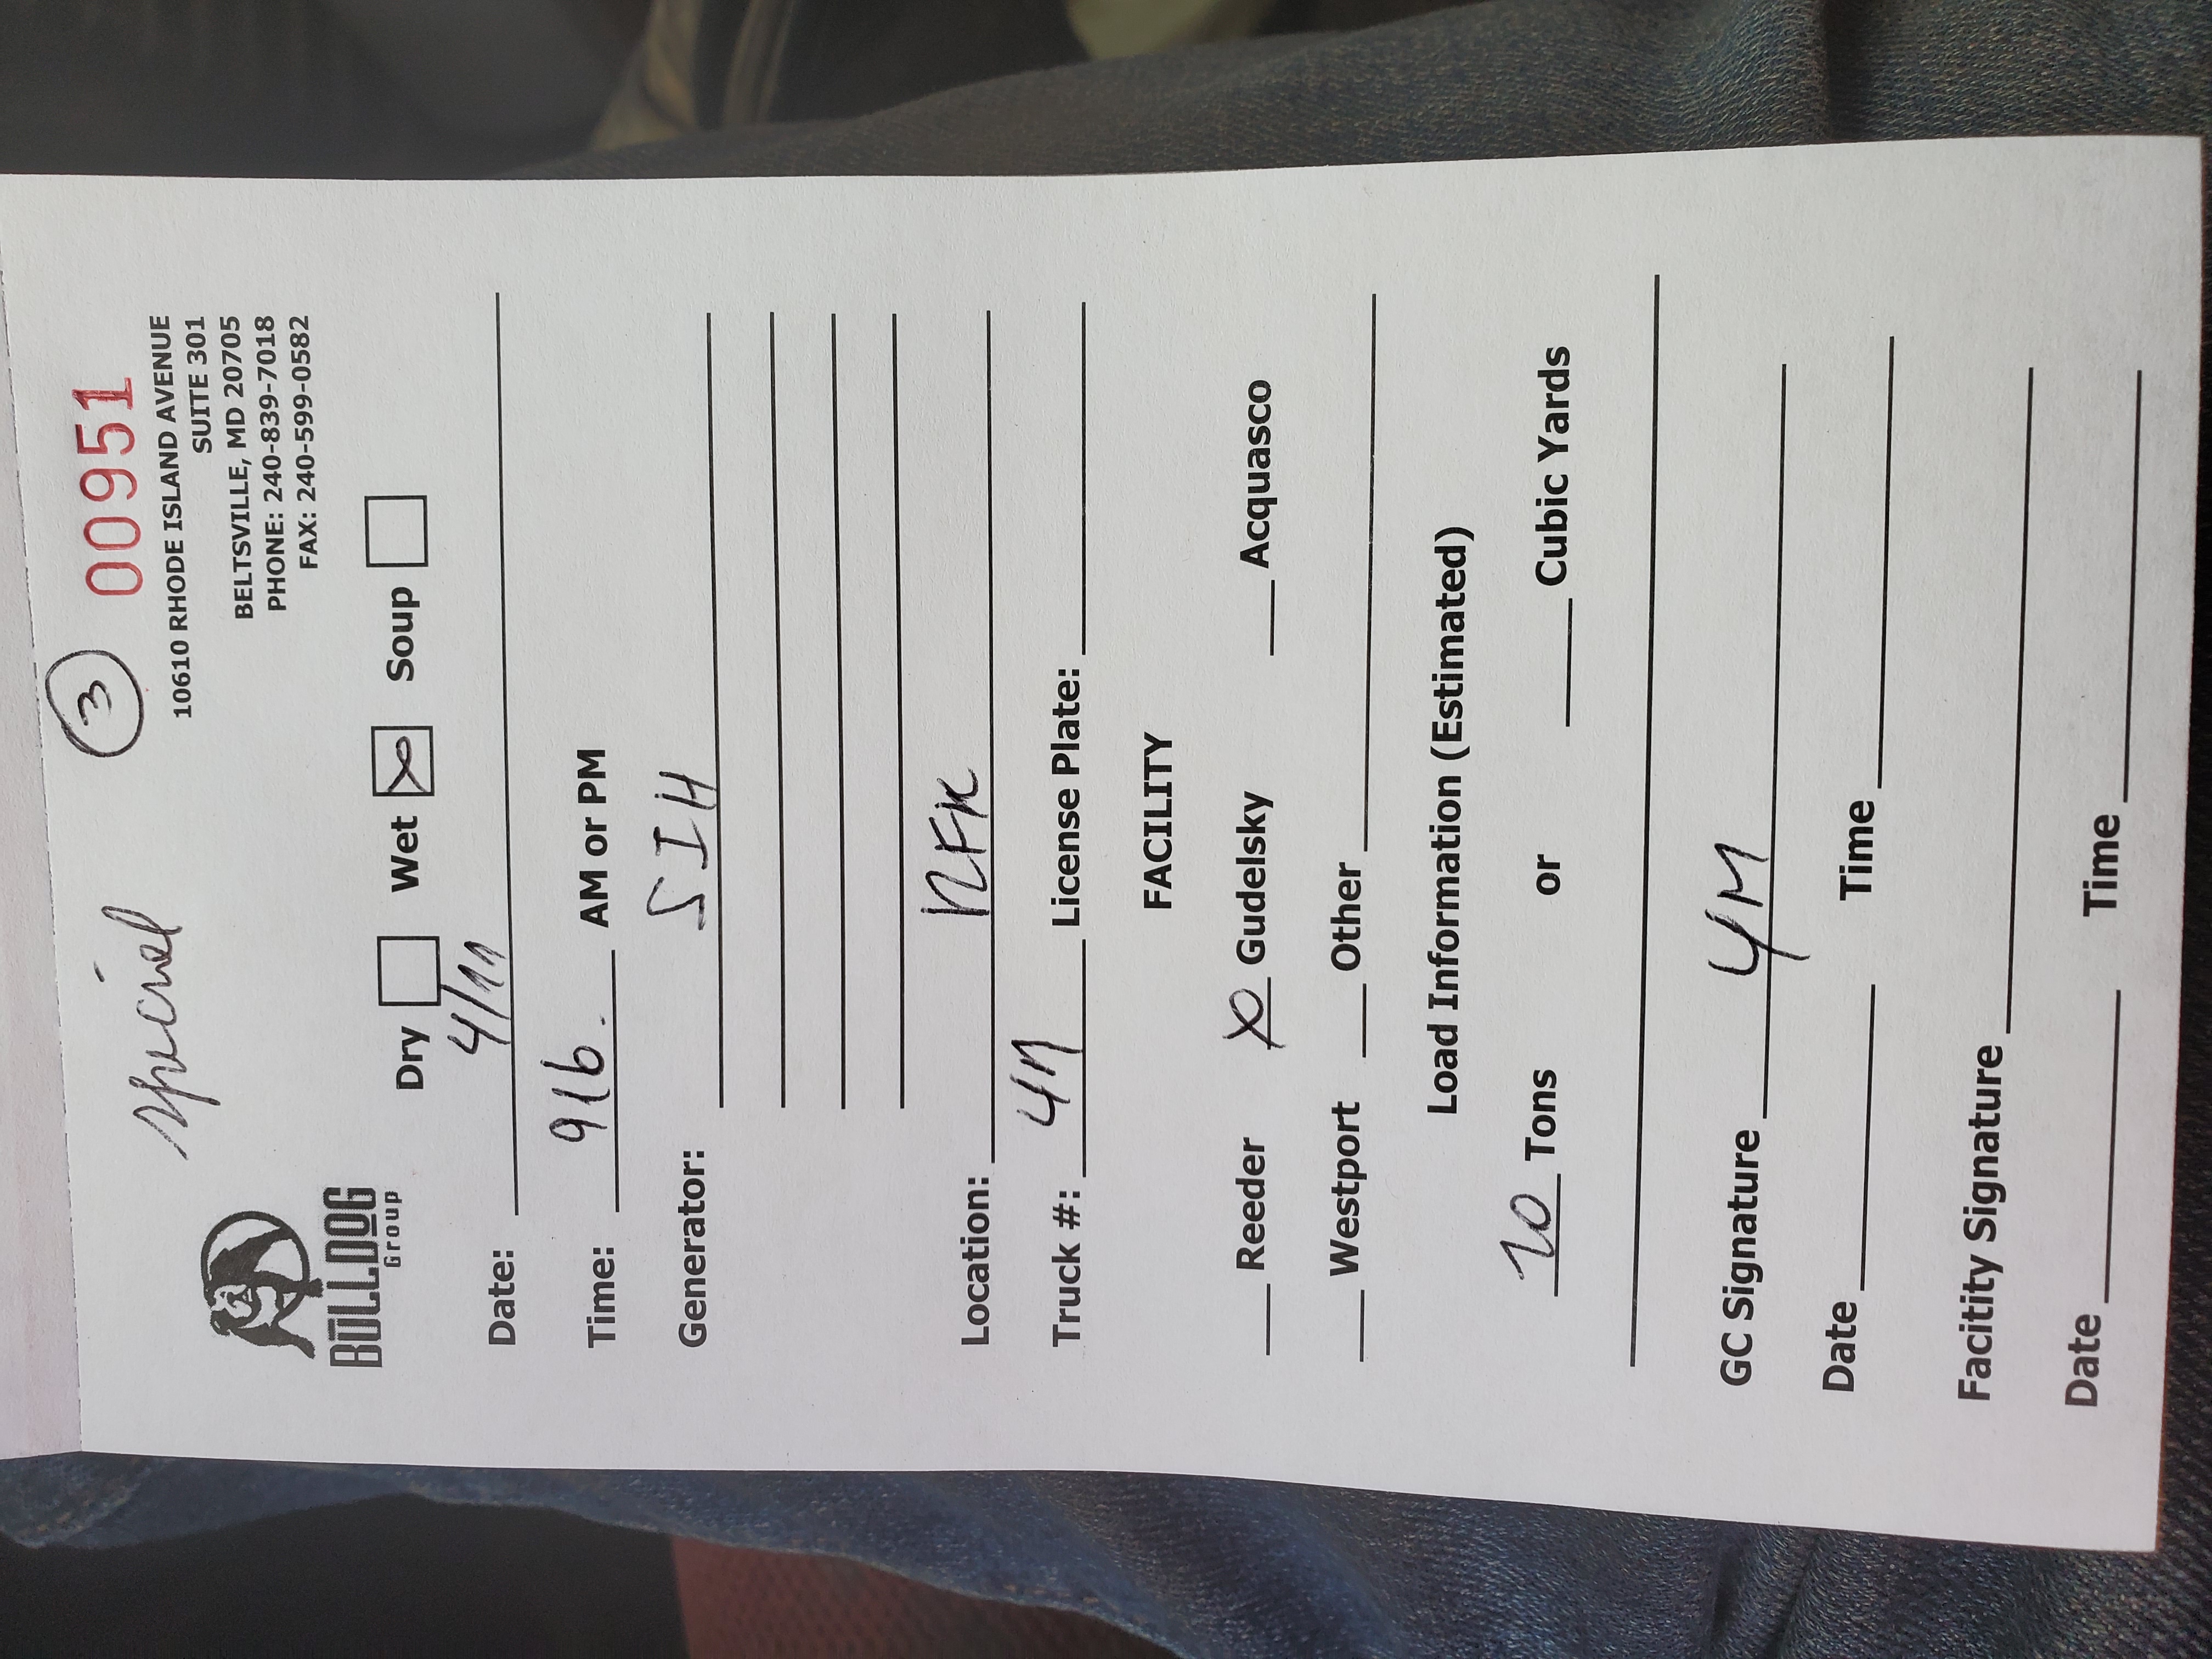 special
3
00951
10610 RHODE ISLAND AVENUE
SUITE 301
BELTSVILLE, MD 20705
PHONE: 240-839-7018
FAX: 240-599-0582
BULLDOG
Group
Dry Wet Soup
Date: 4/11
Time: 916. AM or PM
Generator: SIH
Location: RFK
Truck #: License Plate:
FACILITY
Reeder Gudelsky Acquasco
Westport Other
Load Information (Estimated)
Tons or Cubic Yards
GC Signature YM
Date Time
Facitity Signature
Date Time